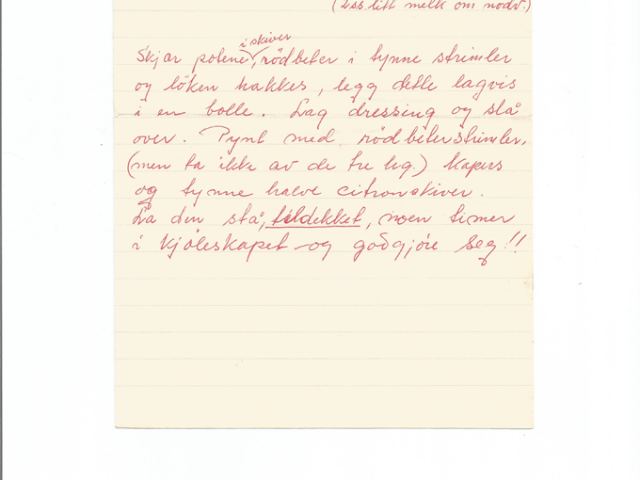 (Iss litt melk om nødv.)
i skiver
Skjar potene, rödbeter i tynne strimler
og löken hakkes, legg dette lagvis
i en bolle. Lag dressing og slå
over. Pynt med rödbeterstrimler,
(men ta ikke av de tre lag.) Kapers
og tynne halve citronskiver.
La den stå, tildekket, noen timer
i kjöleskapet og godgjöre seg!!